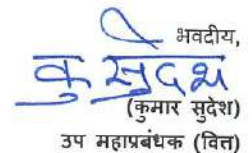 भवदीय,
कु सुदेश
(कुमार सुदेश)
उप महाप्रबंधक (वित्त)